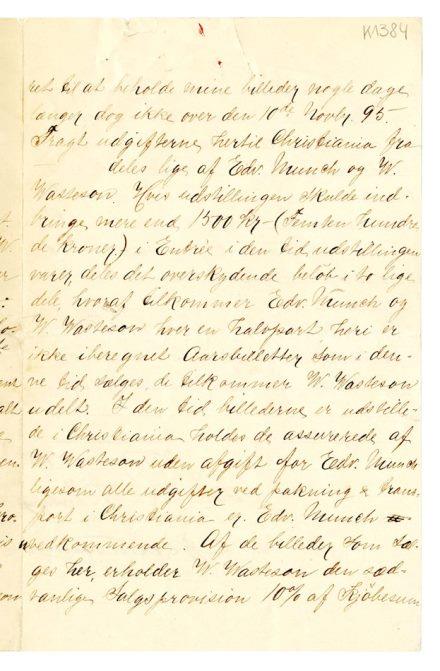 K1384
ret til at beholde mine billeder nogle dage
længer dog ikke over den 10de Novbr. 95.
Fragt udgifterne hertil Christiania fra
deles lige af Edv. Munch og W.
Wasteson. Hvis udstillingen skulde ind-
bringe mere end 1500 Kr (Femten Hundre
de Kroner) i Entrie i den tid udstillingen
varer, deles det overskydende beløb i to lige
dele, hvoraf tilkommer Edv. Munch og
W. Wasteson hver en halvpart heri er
ikke iberegnet Aarsbilletter som i den-
ne tid sælges, de tilkommer W. Wasteson
udelt. I den tid billederne er udstille-
de i Christiania holdes de assurerede af
W. Wasteson uden afgift for Edv. Munch
ligesom alle udgifter ved pakning & trans-
port i Christiania ej Edv. Munch
vedkommende. Af de billeder som sæl-
ges her, erholder W. Wasteson den sæd-
vanlige Salgsprovision 10% af Kjøbesum